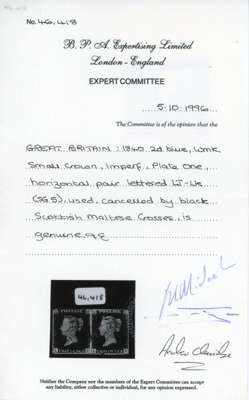 No. 46,418
B. P. A. Expertising Limited
London - England
EXPERT COMMITTEE
5.10.1996
The Committee is of the opinion that the
GREAT BRITAIN: 1840 2d blue, Wmk
Small Crown, Imperf, Plate One,
horizontal pair lettered
(SG5), used, cancelled by black
Scottish Maltese Crosses, is
genuine.
46,418
Neither the Committee nor the members of the Expert Committee can accept
any liability, either collective or individual, for any error in this opinion.